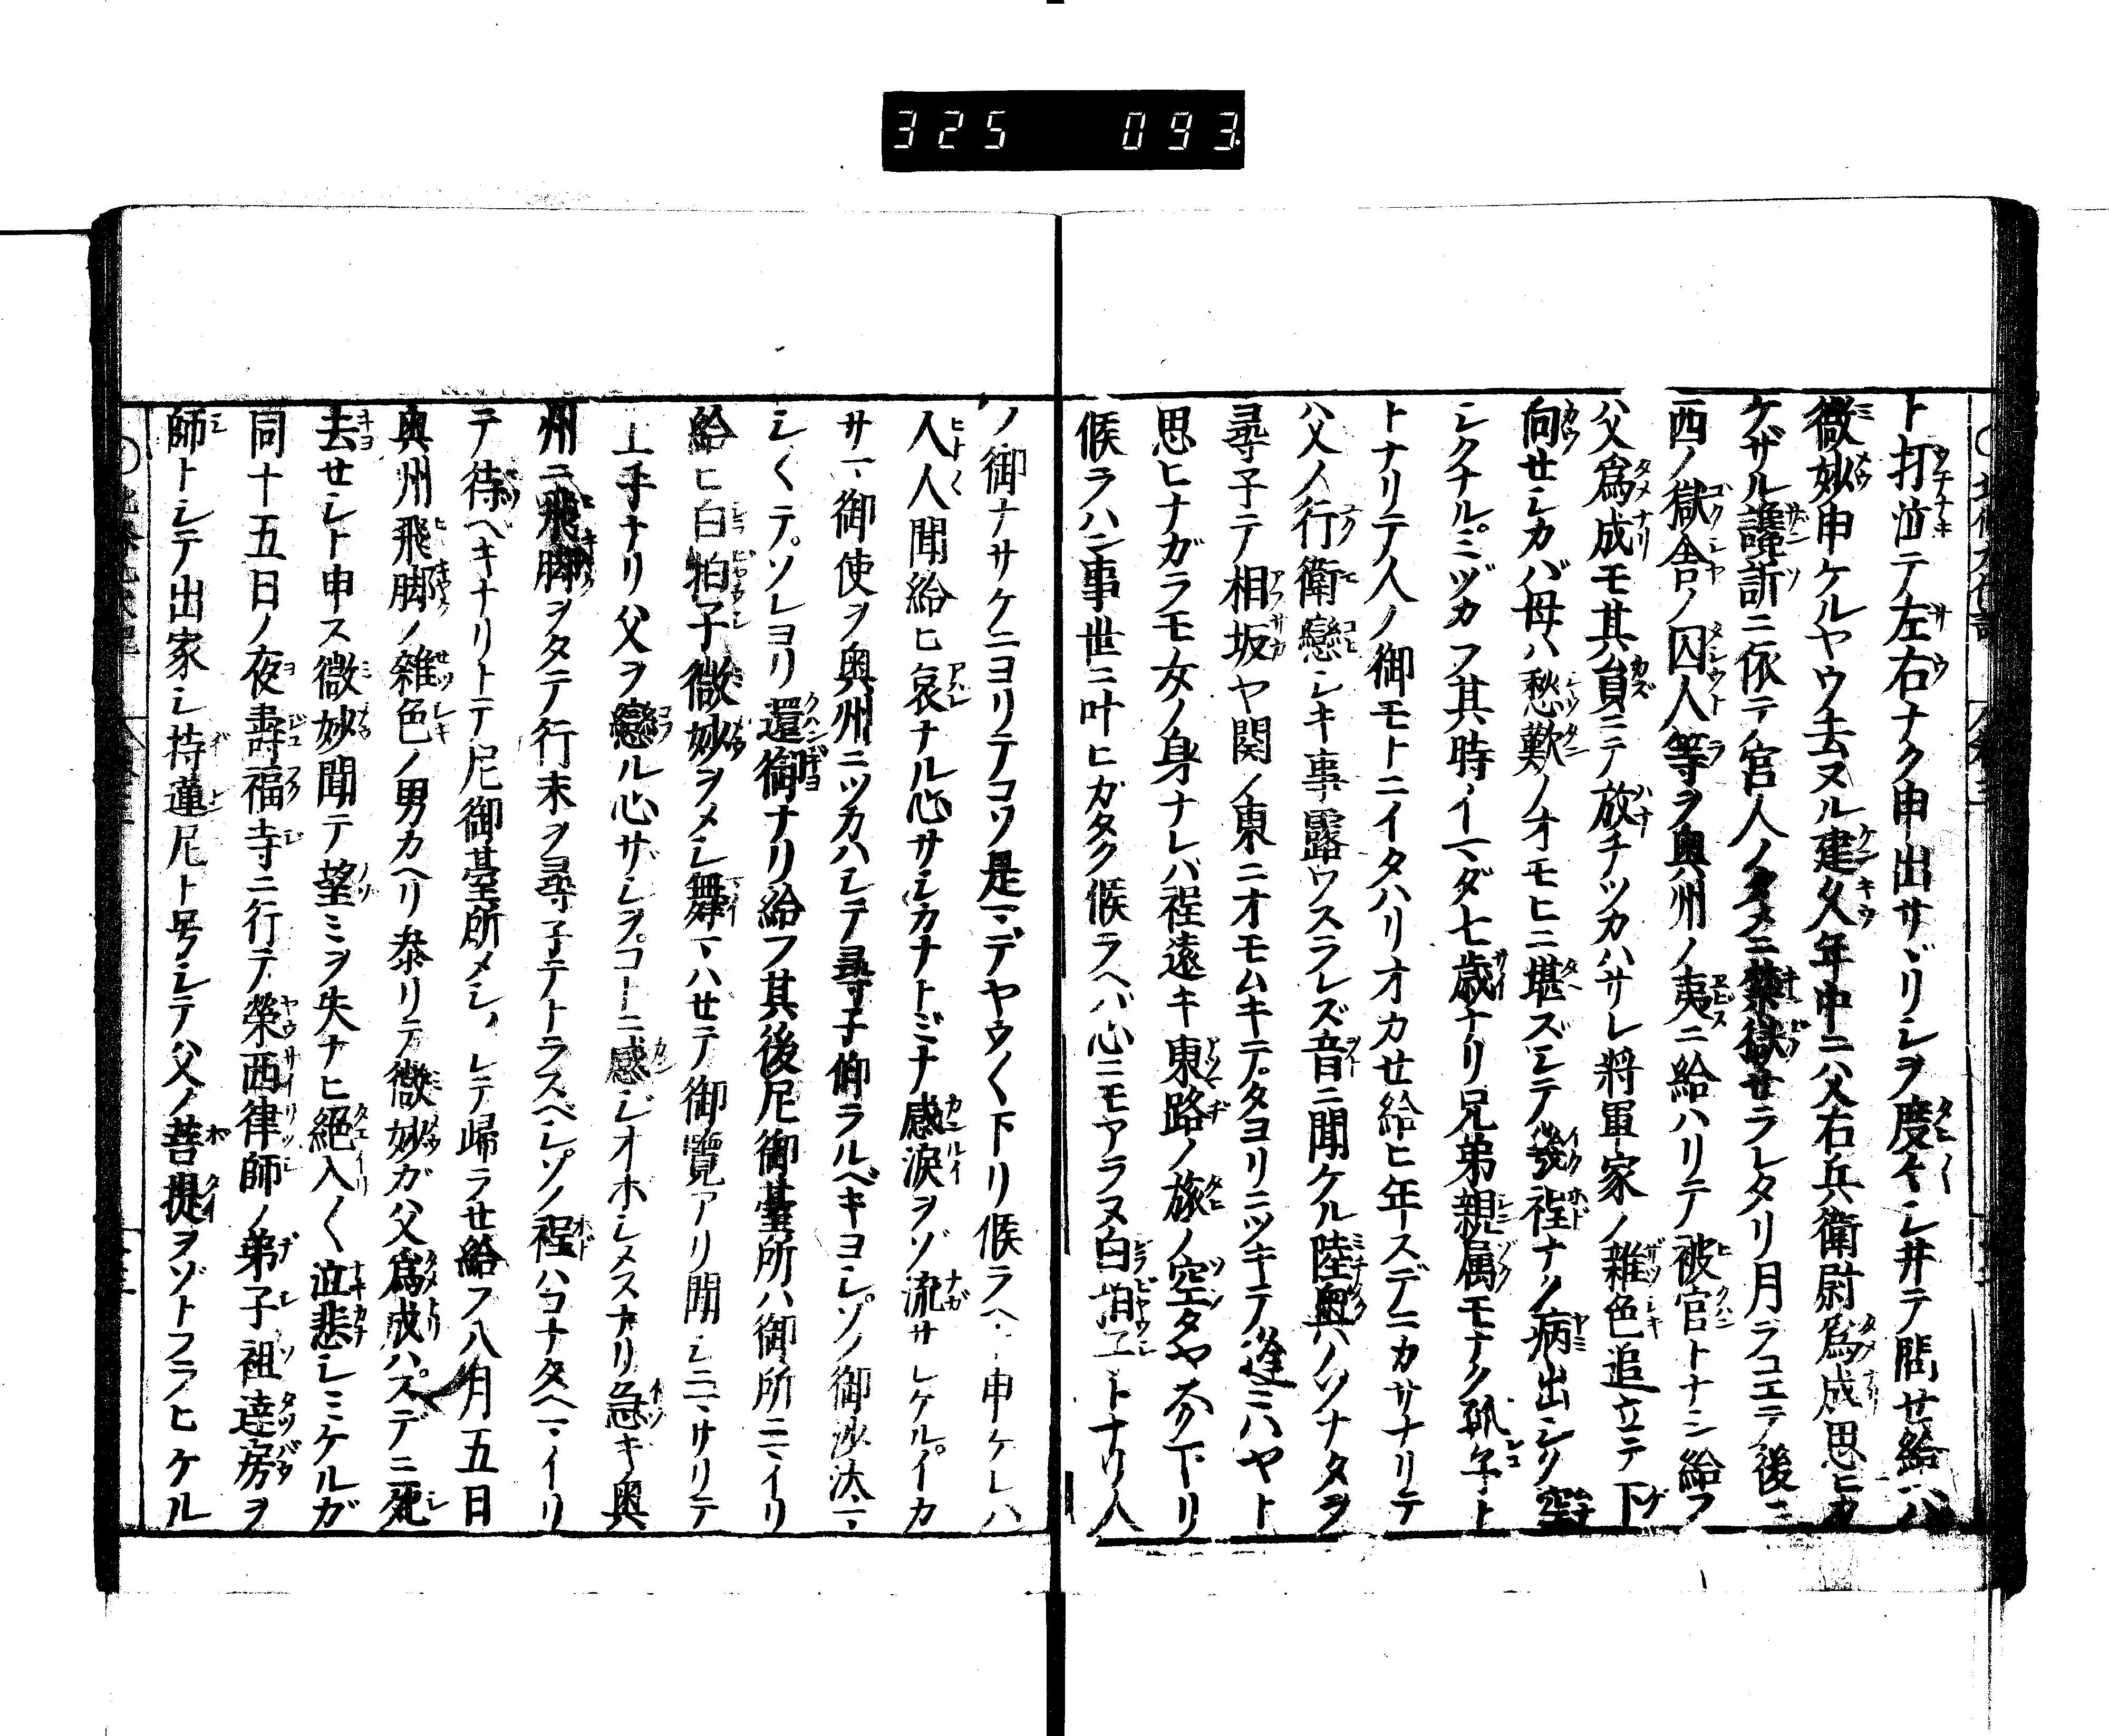 325 093
ト打泣テ左右ナク申出サヾリシヲ度々シ井テ問せ給ヘハ
微妙申ケルヤウ去ヌル建久年中ニ父右兵衛尉爲成思ヒカ
ケザル讒訴ニ依テ官人ノタメニ禁獄せラレタリ月ヲコエテ後ニ
西ノ獄舎ノ囚人等ヲ奥州ノ夷ニ給ハリテ被官トナシ給フ
父爲成モ其員ニテ放チツカハサレ將軍家ノ雜色追立テ下
向せシカバ母ハ愁歎ノオモヒニ堪ズシテ幾程ナク病出シク空
シクナルミヅカフ其時イマダ七歳ナリ兄弟親属モナク孤子ト
トナリテ人ノ御モトニイタハリオカせ給ヒ年スデニカサナリテ
ハ父ノ行衛戀シキ事露ワスラレズ音ニ聞ケル陸奥ハソナタヲ
尋子テ相坂ヤ関ノ東ニオモムキテタヨリニツキテ逢ミハヤト
思ヒナガラモ女ノ身ナレバ程遠キ東路ノ旅ノ空タヤスク下リ
候ラハン事世ニ叶ヒガタク候ラヘバ心ニモアラヌ白拍子トナリ人
ノ御ナサケニヨリテコソ是マデヤウ〱下リ候ラヘト申ケレハ
人人聞給ヒ哀ナル心サシカナトミナ感涙ヲゾ流サレケルイカ
サマ御使ヲ奥州ニツカハシテ尋子仰ラルベキヨシソノ御沙汰マ
シ〱テソレヨリ還御ナリ給フ其後尼御臺所ハ御所ニマイリ
給ヒ白拍子微妙ヲメシ舞マハせテ御覽アリ聞シニマサリテ
上手ナリ父ヲ戀ル心ザシヲコトニ感ジオホシメスナリ急キ奥
州ニ飛脚ヲタテ行末ヲ尋子テトラスベシソノ程ハコナタヘマイリ
テ待ベキナリトテ尼御臺所メシツレテ歸ラせ給フ八月五日
奥州飛脚ノ雜色ノ男カヘリ參リテ微妙ガ父爲成ハスデニ死
去せシト申ス微妙聞テ望ミヲ失ナヒ絶入〱泣悲シミケルガ
同十五日ノ夜壽福寺ニ行テ榮西律師ノ弟子祖達房ヲ
師トシテ出家シ持蓮尼ト号シテ父ノ菩提ヲゾトフラヒケル